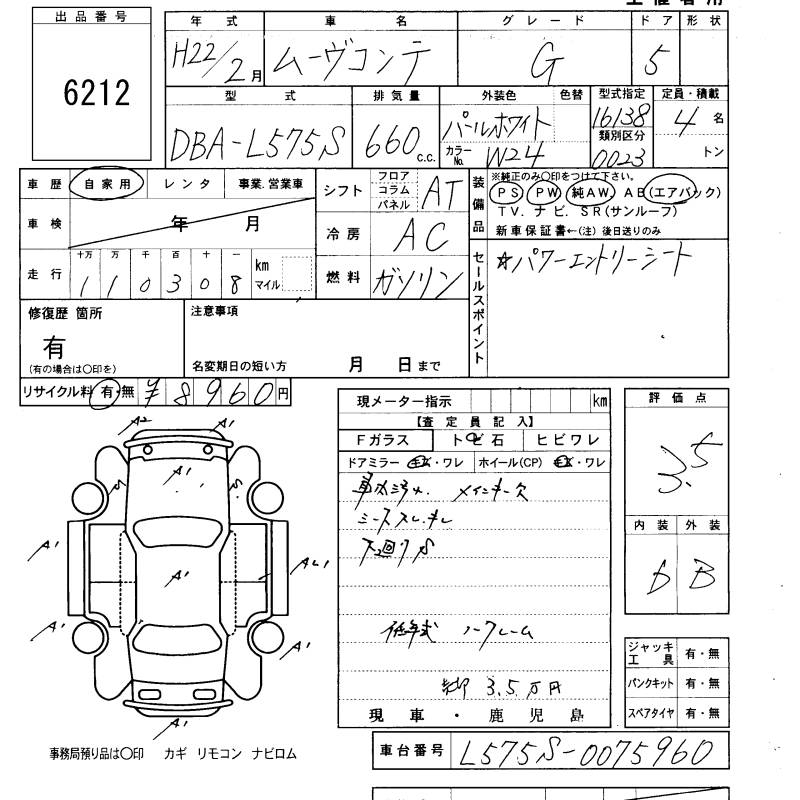 出品番号
6212
年式 車名 グレード ドア 形状
H22/2月 ムーヴコンテ G 5
型式 排気量 外装色 色替 型式指定 定員・積載
DBA-L575S 660 c.c. パールホワイト 16138 4名
カラーNo. W24 類別区分 0023 トン
車歴 自家用 レンタ 事業.営業車
車検 年 月
走行 十万 万 千 百 十 一
110308 km マイル
シフト フロア コラム パネル AT
冷房 AC
燃料 ガソリン
装備品
※純正のみ〇印をつけて下さい。
PS PW 純AW AB(エアバック)
TV. ナビ. SR(サンルーフ)
新車保証書←(注) 後日送りのみ
セールスポイント
☆パワーエントリーシート
修復歴 箇所
有
(有の場合は〇印を)
注意事項
名変期日の短い方 月 日まで
リサイクル料 有・無 ¥8960円
現メーター指示 km
【査定員記入】
Fガラス トビ石 ヒビワレ
ドアミラー キズ・ワレ ホイール(CP) キズ・ワレ
シートスレ・キレ
下回りS
低年式 ノークレーム
3.5万円
現車・鹿児島
評価点
3.5
内装 外装
D B
ジャッキ工具 有・無
パンクキット 有・無
スペアタイヤ 有・無
A2 A1
A1
S S
A1 A1 AU1
A1 A1
A1
事務局預り品は〇印 カギ リモコン ナビロム
車台番号 L575S-0075960